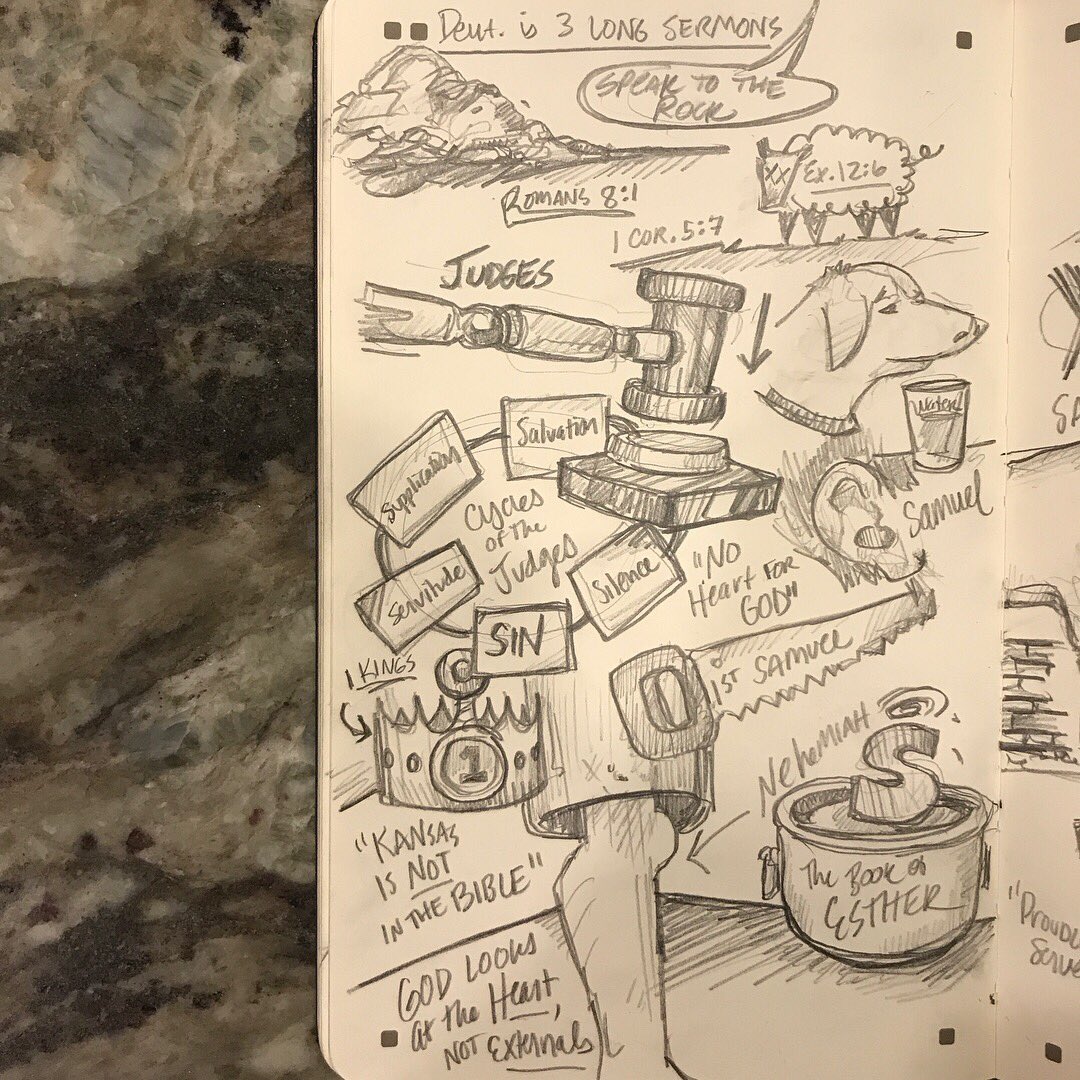 Deut. is 3 LONG SERMONS
SPEAK TO THE
ROCK
Ex. 12:6
XX
ROMANS 8:1
1 COR. 5:7
JUDGES
Water
Salvation
Supplication
Cycles
of the
Judges
Servitude
Silence
SIN
Samuel
"NO
Heart FOR
GOD"
1 KINGS
1ST SAMUEL
1
NeheMIAH
S
The Book of
ESTHER
"KANSAS
IS NOT
IN THE BIBLE"
GOD LOOKS
at the Heart,
NOT Externals
SA
"Proud
Serve